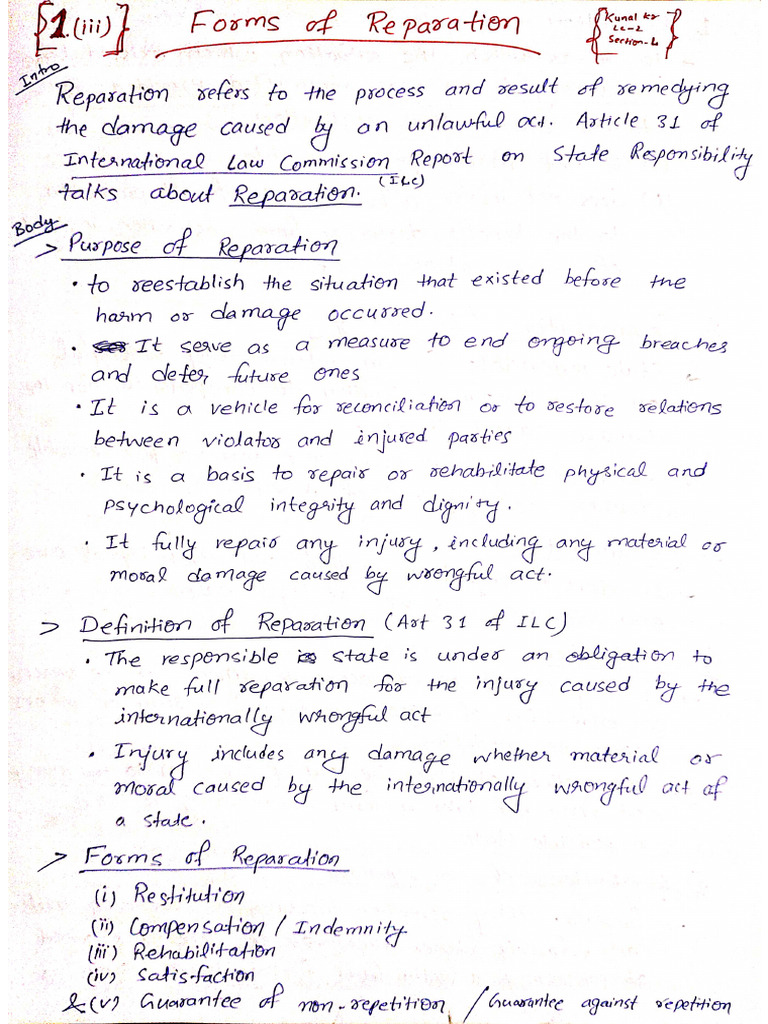 {1.(iii)} Forms of Reparation
{Kunal Kr
LC-2
Section-L}
Intro
Reparation refers to the process and result of remedying
the damage caused by an unlawful act. Article 31 of
International Law Commission Report on State Responsibility
(ILC)
talks about Reparation.
Body
> Purpose of Reparation
• to reestablish the situation that existed before the
harm or damage occurred.
• It serve as a measure to end ongoing breaches
and deter future ones
• It is a vehicle for reconciliation or to restore relations
between violator and injured parties
• It is a basis to repair or rehabilitate physical and
psychological integrity and dignity.
• It fully repair any injury, including any material or
moral damage caused by wrongful act.
> Definition of Reparation (Art 31 of ILC)
• The responsible state is under an obligation to
make full reparation for the injury caused by the
internationally wrongful act
• Injury includes any damage whether material or
moral caused by the internationally wrongful act of
a state.
> Forms of Reparation
(i) Restitution
(ii) Compensation / Indemnity
(iii) Rehabilitation
(iv) Satisfaction
& (v) Guarantee of non-repetition / Guarantee against repetition